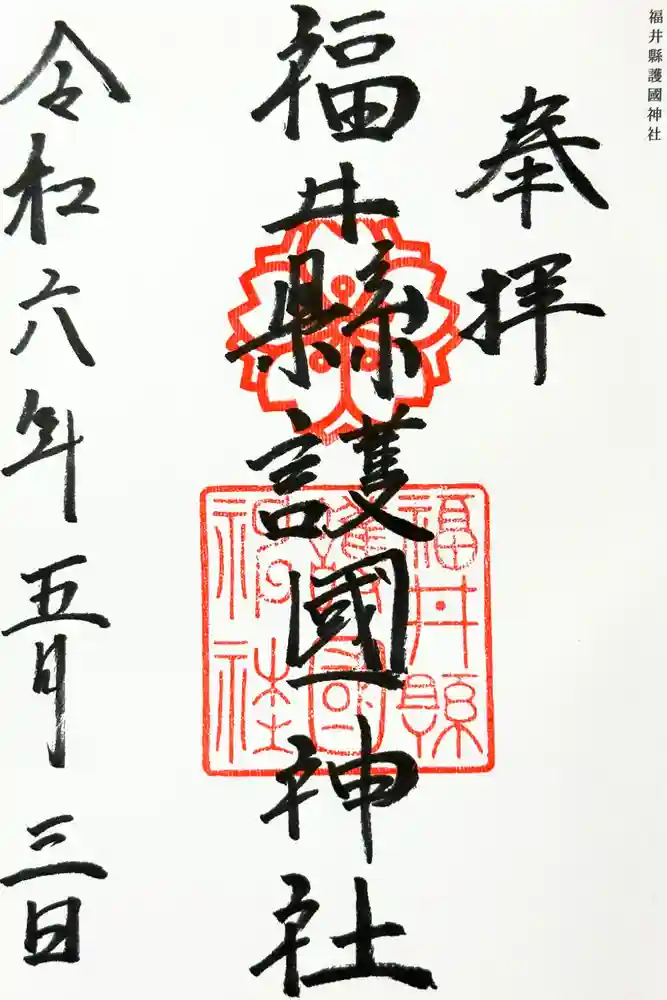 福井縣護國神社
奉拝
福井縣護國神社
福井縣
護國
神社
令和六年五月三日